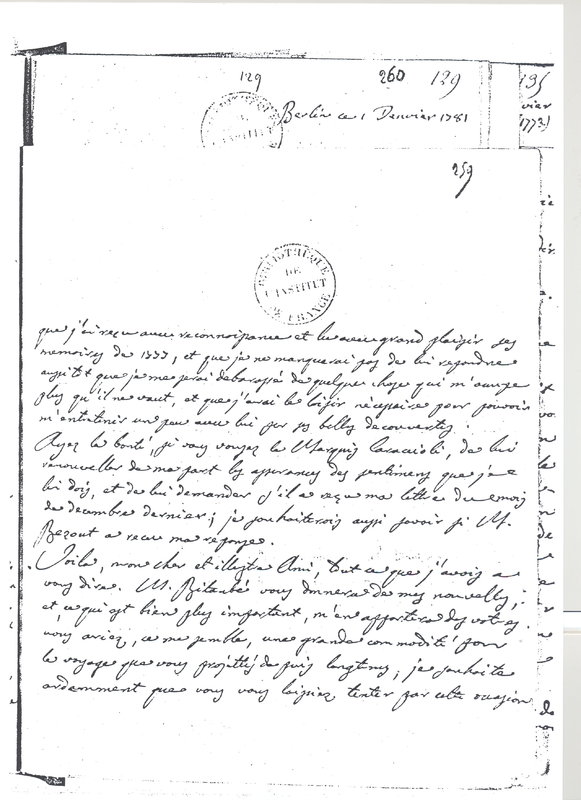 129
260 129
135
Berlin ce 1 Denvier 1781
vier
1773)
259
BIBLIOTHÈQUE
DE
L'INSTITUT
DE FRANCE
que j'ai reçu avec reconnoissance et lu avec grand plaisir ses
memoires de 1777, et que je ne manquerai pas de lui repondre
aussitôt que je me serai debarassé de quelque chose qui m'occupe
plus qu'il ne vaut, et que j'aurai le loisir nécessaire pour pouvoir
m'entretenir un peu avec lui sur ses belles decouvertes.
Ayez la bonté, si vous voyez le Marquis Caraccioli, de lui
renouveller de ma part les assurances des sentimens que je
lui dois, et de lui demander s'il a reçu ma lettre du mois
de decembre dernier; je souhaiterois aussi savoir si M.
Bezout a recu ma reponse.
Voila, mon cher et illustre Ami, tout ce que j'avois a
vous dire. M. Bitaubé vous donnera de mes nouvelles;
et ce qui est bien plus important, m'en apportera des votres.
vous auriez, ce me semble, une grande commodité pour
le voyage que vous projettés depuis longtems; je souhaite
ardemment que vous vous laissiez tenter par cette occasion